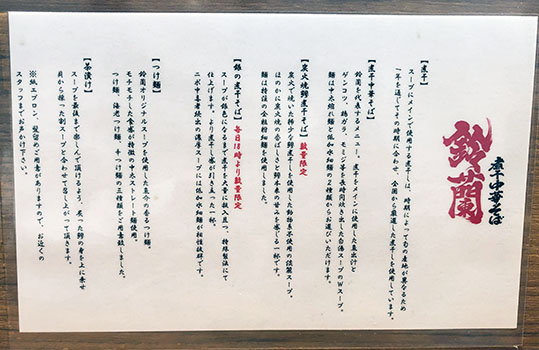 煮干中華そば
鈴蘭
【煮干】
スープにメインで使用する煮干しは、時期によって旬の産地が異なるため
一年を通じてその時期に合わせ、全国から厳選した煮干しを使用しています。
【煮干中華そば】
鈴蘭を代表するメニュー。煮干をメインに使用した魚出汁と
ゲンコツ、鶏ガラ、モミジ等を長時間炊き出した白湯スープのWスープ。
麺は中太縮れ麺と低加水細麺の2種類からお選びいただけます。
【炭火焼鯵煮干そば】数量限定
炭火で焼いた稀少な鯵煮干しを使用した動物系不使用の淡麗スープ。
ほのかに炭火焼の香ばしさと鯵本来の甘みを感じる一杯です。
麺は特注の全粒粉細麺を使用しました。
【銀の煮干そば】毎日18時より数量限定
スープが銀色になるまで煮干しを大量に投入し炊きつつ、特殊製法にて
仕上げます。より煮干し感が引き立った一杯。
ニボ中毒者続出の濃厚スープには低加水細麺が相性抜群です。
【つけ麺】
鈴蘭オリジナルスープを使用した魚介の香るつけ麺。
モチモチした食感が特徴の中太ストレート麺使用。
つけ麺、海老つけ麺、辛つけ麺の三種類をご用意致しました。
【茶漬け】
スープを最後まで楽しんで頂けるよう、炙った鯵の身を上に乗せ
貝から採った割スープと合わせて召し上がって頂きます。
※紙エプロン、髪留めご用意がありますので、お近くの
スタッフまでお声かけ下さい。